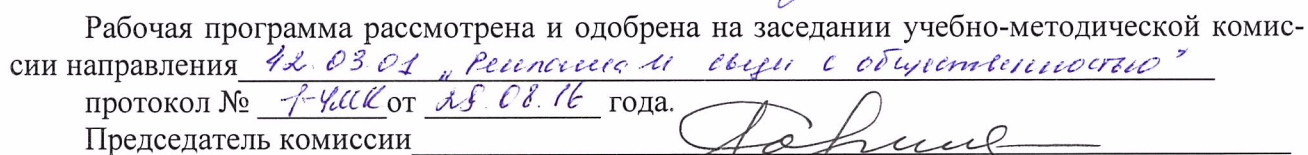 Рабочая программа рассмотрена и одобрена на заседании учебно-методической комис-
сии направления 42.03.01 „Реклама и связи с общественностью"
протокол № 1-УМК от 29.08.16 года.
Председатель комиссии